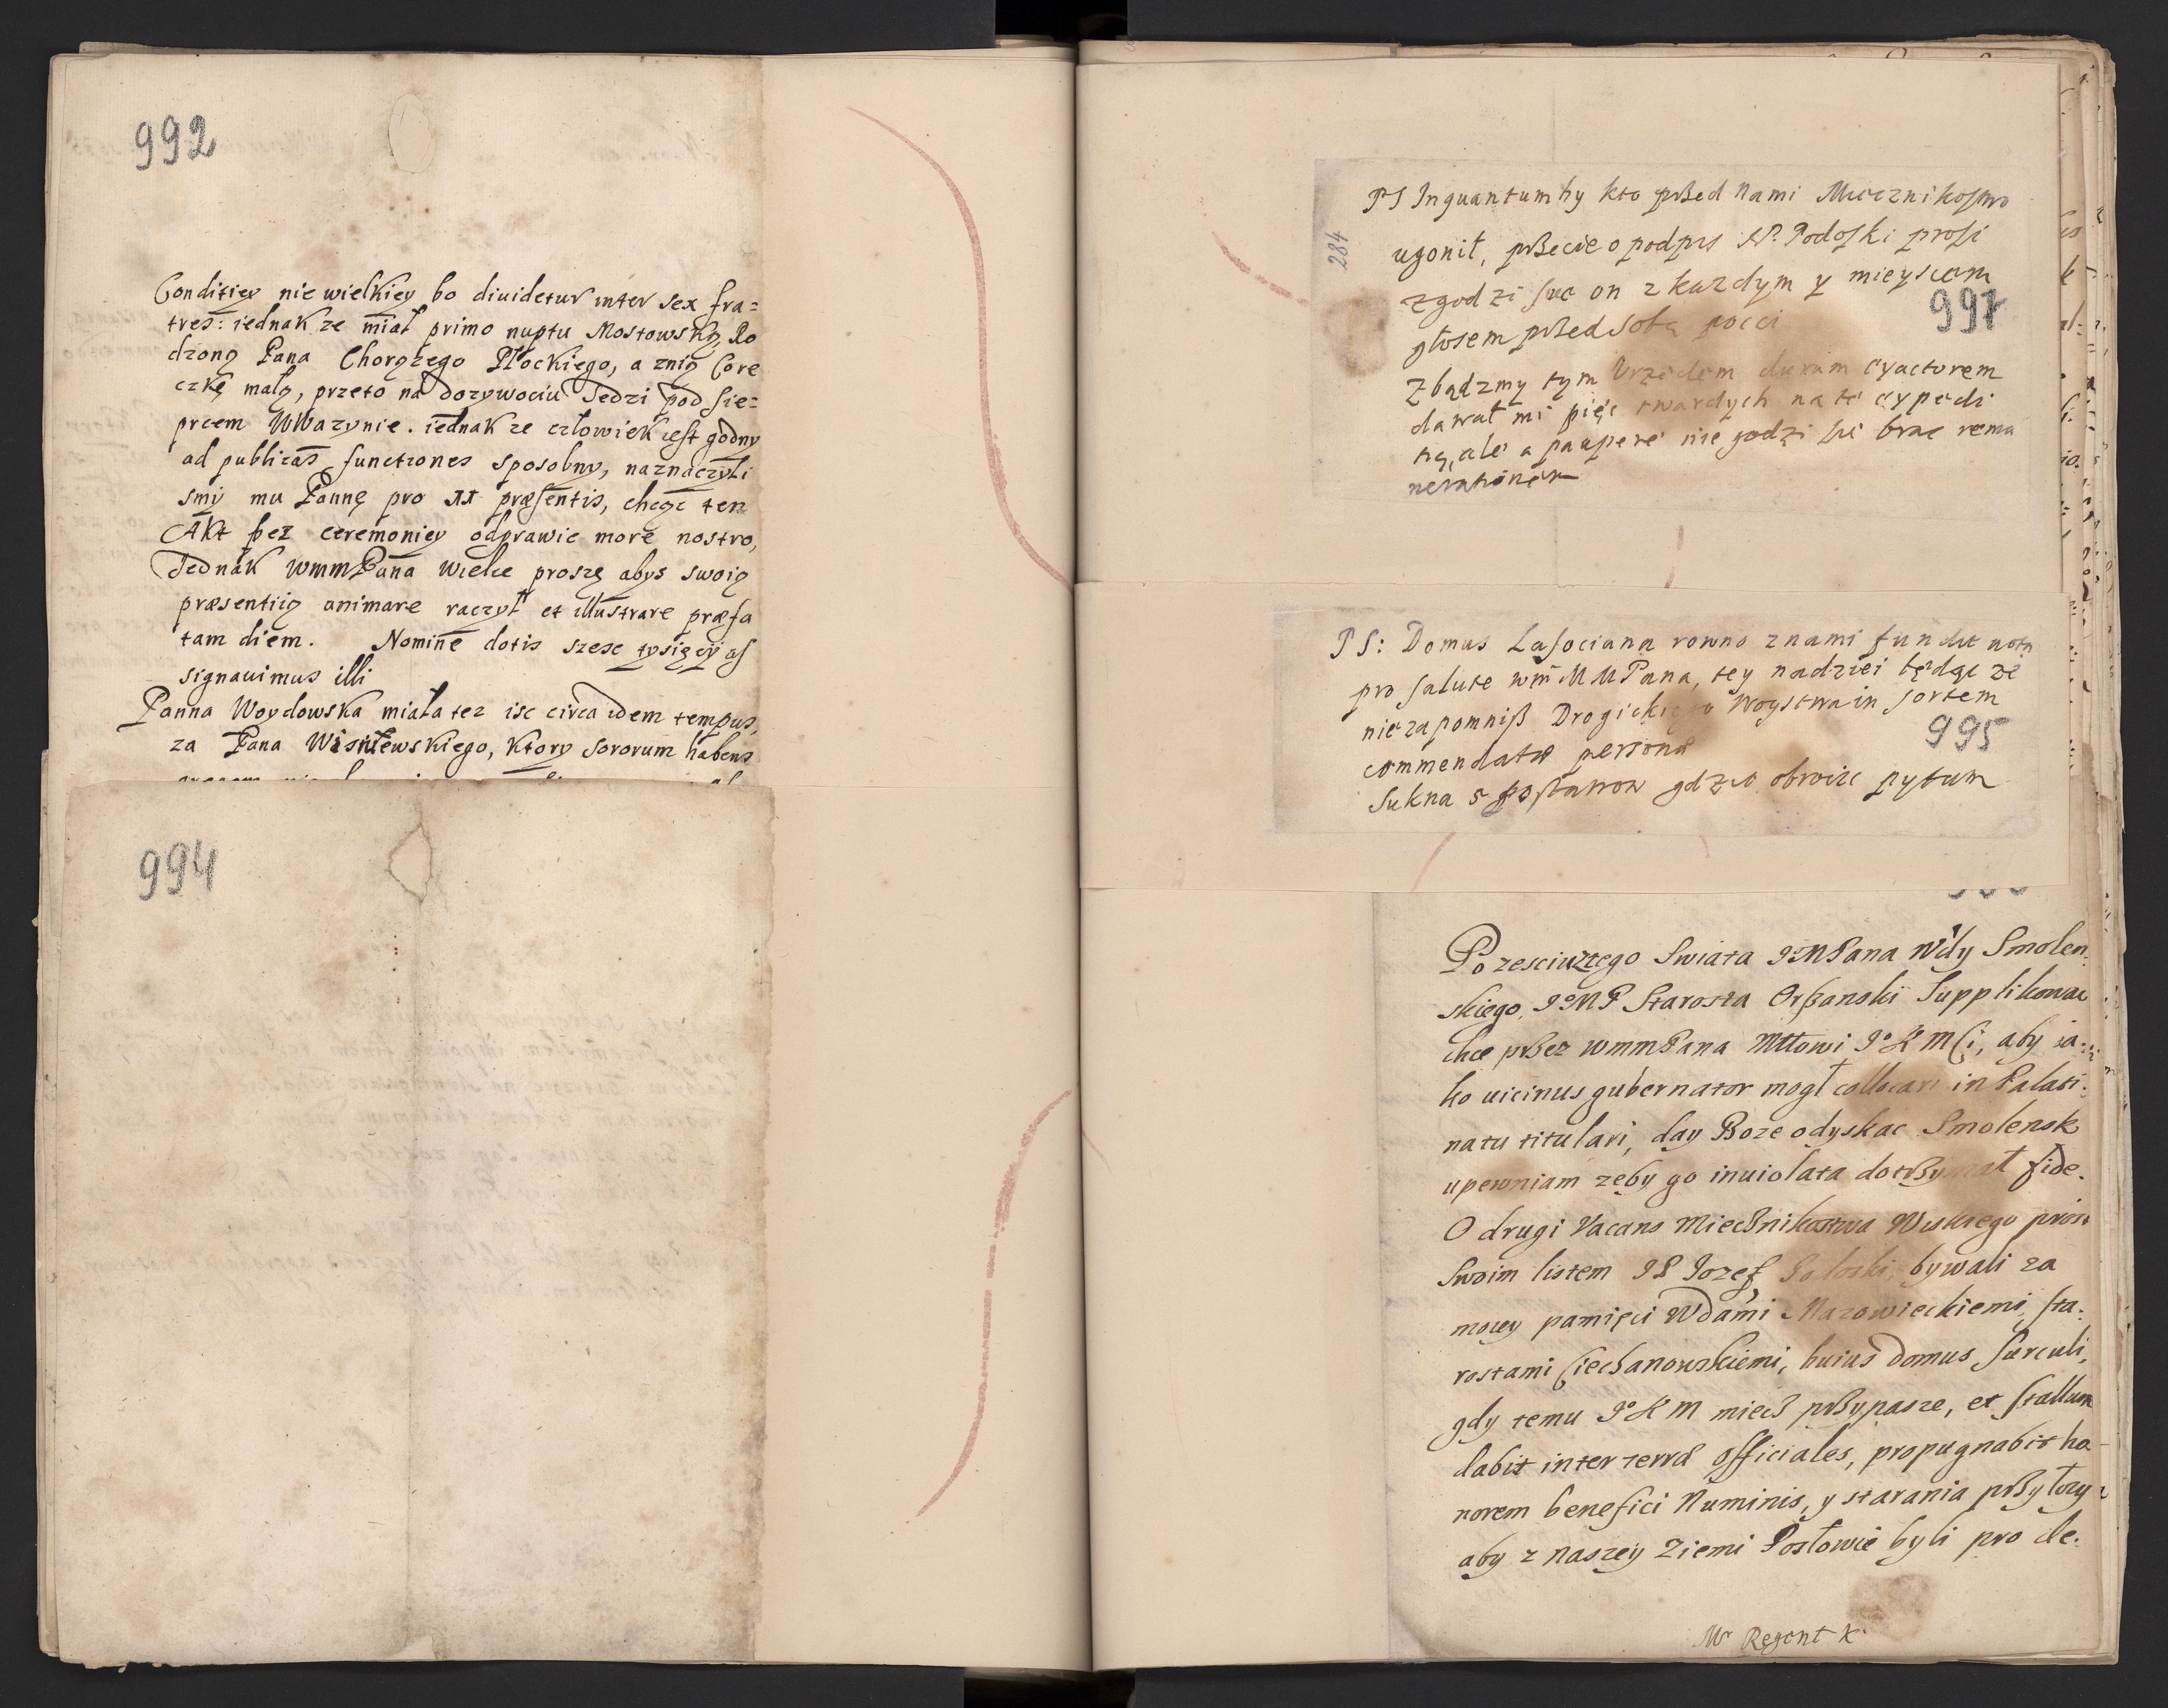 992
Conditiey nie wielkiey bo diuidetur inter sex fra=
tres: iednak ze miał primo nuptu Mostowską, Ro
dzoną Pana Chorążego Płockiego, a znią Core
czkę małą, przeto na dozywociu Jedzi pod Sie=
prcem WWazynie. iednak ze człowiek iest godny
ad publicas functiones sposobny, naznaczyli
smy mu Pannę pro praesentis, chcąc ten
Akt bez ceremoniey odprawic more nostro,
Jednak wmmPana wielce proszę abys swoią
praesentiią animare raczył et illustrare praefa
tam diem. Nomine dotis szesc tysięcy as
signauimus illi
Panna Woydowska miała tez isc circa idem tempus,
za Pana Wisniewskiego, ktory sororum habens
994
284
PS Inquantumby kto przßed nami Miecznikostwo
ugonił, pßecie o podpis Podoski prosi
zgodzi sie on z kazdym y mieyscem
głosem pßed sobą
997
Zbądzmy tym Vrzędem exactorem
dawał mi pięc twardych na te expedi
, ale a paupere nie godzi się brac remu
nerationem
PS: Domus Lasociana rowno znami fundit vota
pro salute wm MMPana, tey nadziei będąc ze
niezapomniß Drogickiego Woystwa in sortem
commendatae personae
995
Sukna 5 postawow gdzie obroic pytam
Po zesciu ztego Swiata JoMPana Wdy Smolen:
skiego, JoMP Starosta Orßanski Supplikowac
chce pßez wmmPana Mttowi JoKMCi, aby ia:
ko uicinus gubernator mogł collocari in Palati:
natu titulari, day Boze odyskac Smolensk
upewniam zeby go inuiolata dotßymał fide.
O drugi Vacans Miecßnikostwa Wiskiego prosi
Swoim listem JP Jozef bywali za
moiey pamięci Wdami Mazowieckiemi, sta:
rostami Ciechanowskiemi, huius domus surculi,
gdy temu JoKM miecß pßypasze, et stallum
dabit inter terrae officiales, propugnabit ho-
norem benefici Numinis, y starania pßyłozy
aby z naszey Ziemi Posłowie byli pro de:
Mr Regent K.